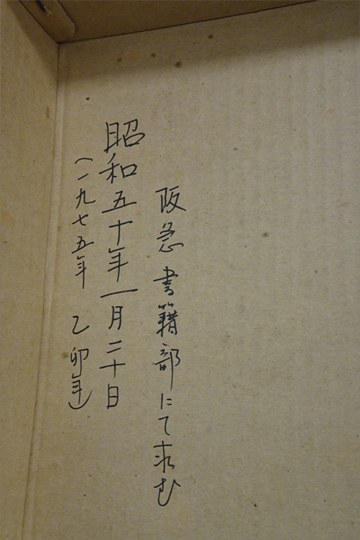 阪急 書籍部にて求む
昭和五十年一月二十日
(一九七五年 乙卯年)